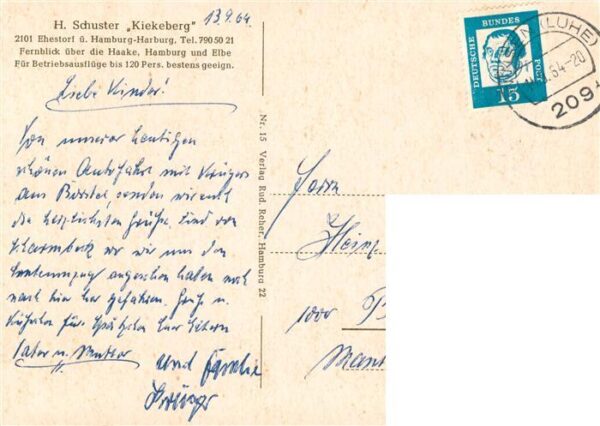 H. Schuster „Kiekeberg"
2101 Ehestorf ü. Hamburg-Harburg, Tel. 790 50 21
Fernblick über die Haake, Hamburg und Elbe
Für Betriebsausflüge bis 120 Pers. bestens geeign.
13.9.64
Liebe Kinder!
Von unserer heutigen
schönen Autofahrt mit Krügers
aus Börstel, senden wir euch
die herzlichsten Grüße. Sind von
wo wir uns den
angesehen haben noch
nach hier her gefahren. Gruß u.
Küßchen für
Vater u. Mutter
und Familie
Krüger
Nr. 15 Verlag Rud. Reher, Hamburg 22
DEUTSCHE BUNDES POST
15
(LUHE)
.64-20
209
Herrn
Heinz
1000